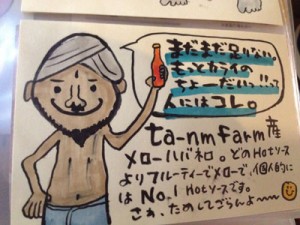 まだまだ足りない。
もっとカライの
ちょーだいっ!!って
人にはコレ。
ta-nm farm産
メローハバネロ。どのHotソース
よりフルーティーでメローで、個人的に
は No.1 Hotソースです。
さあ、ためしてごらんよ〜